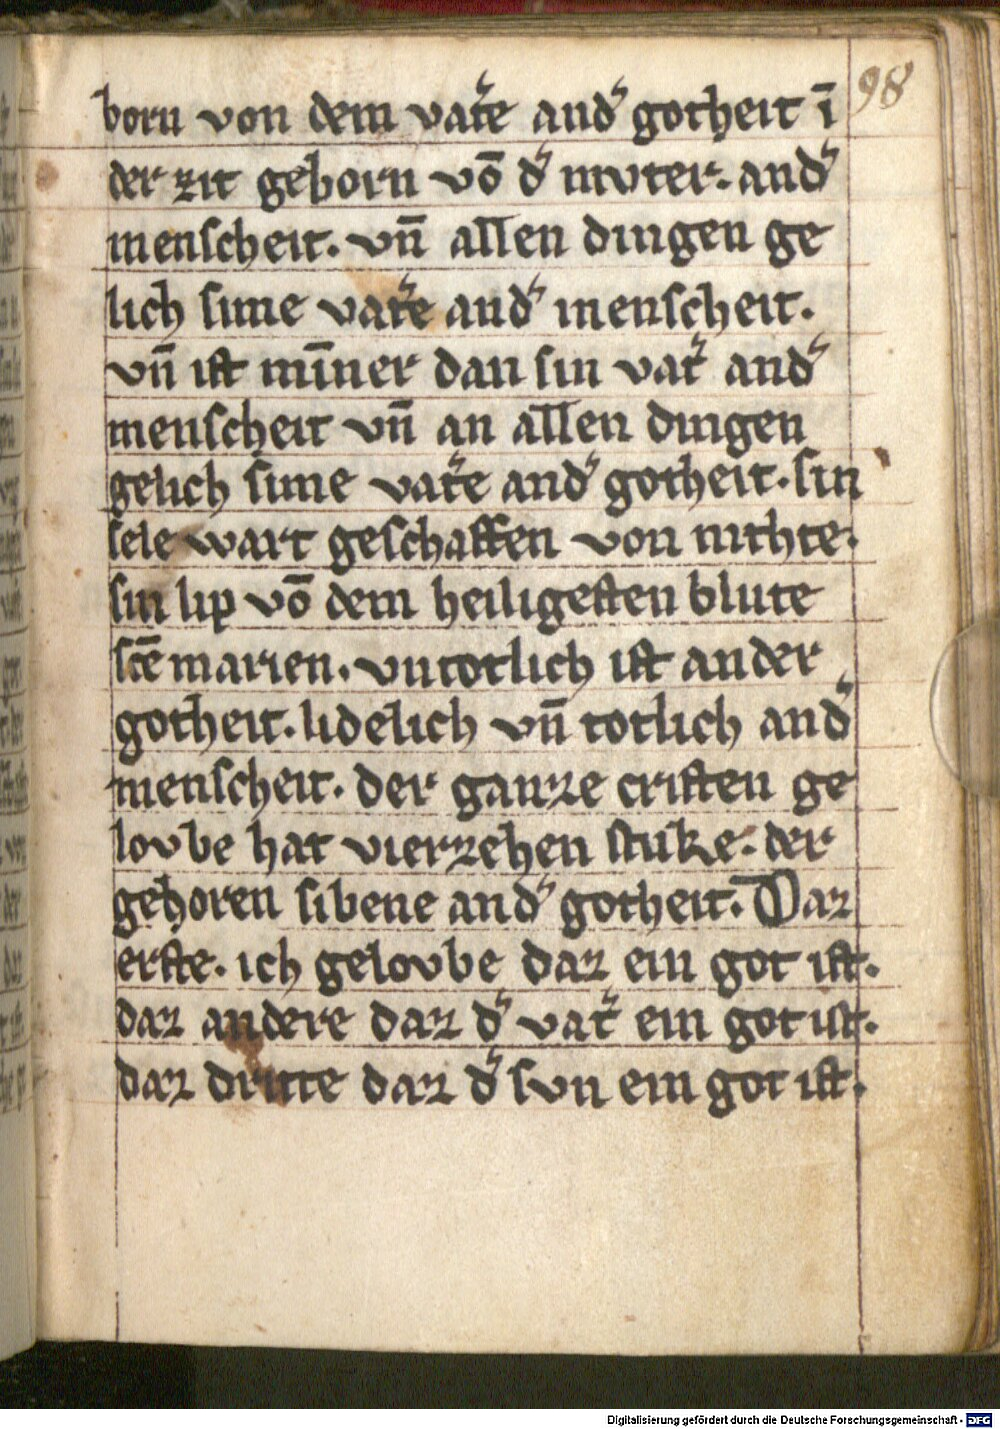 98
born von dem vat͛e and͛ gotheit ī
der zit geborn vō d͛ mvter. and͛
menſcheit. vn̄ allen dingen ge
lich ſime vat͛e and͛ menſcheit.
vn̄ iſt mīner dan ſin vat͛ and͛
menſcheit vn̄ an allen dingen
gelich ſime vat͛e and͛ gotheit. ſin
ſele wart geſchaffen von nithte.
ſin lip vō dem heiligeſten blute
ſcē marien. vntotlich iſt ander
gotheit. lidelich vn̄ totlich and͛
menſcheit. der ganze criſten ge
lovbe hat vierzehen ſtuke. der
gehoren ſibene and͛ gotheit. Daz
erſte. ich gelovbe daz ein got iſt.
daz andere daz d͛ vat͛ ein got iſt.
daz dritte daz d͛ ſvn ein got iſt.
Digitalisierung gefördert durch die Deutsche Forschungsgemeinschaft - DFG